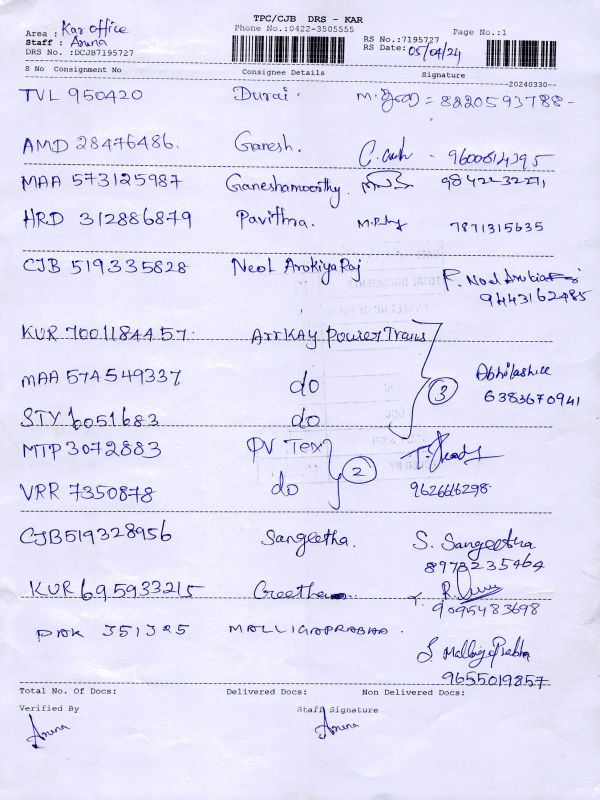 TPC/CJB DRS - KAR
Area : Kar office
Phone No.:0422-3505555
RS No.:7195727
Page No.:1
Staff : Aruna
RS Date: 05/04/24
DRS No. :DCJB7195727
S No Consignment No Consignee Details Signature
20240330--
TVL 950420 Durai. = 8220593788-
AMD 28476486. Ganesh. - 9600614395
MAA 573125987 Ganeshamoorthy.
HRD 312886879 Pavithra. 7871315635
CJB 519335828 Neol ArokiyaRaj
9443162485
KUR 7001184457. ArrKAy PowerTrans
MAA 574549337 do 3 Abhilash
STY 6051683 do 6383670941
MTP 3072883 PV Tex
2
VRR 7350878 do 9626666298.
CJB519328956 Sangeetha. S. Sangeetha
8973235464
KUR 695933215 Geetha
9095483698
351325 MALLIGAPRABHA.
S. Malliga Prabha
9655019857
Total No. Of Docs: Delivered Docs: Non Delivered Docs:
Verified By Staff Signature
Aruna Aruna